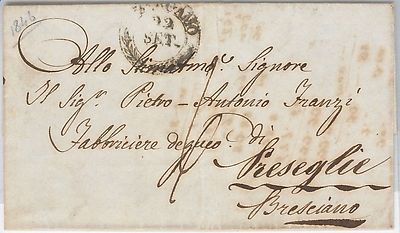 1846
BERGAMO
22
SET.
Allo Stimatmo. Signore
Il Sigr. Pietro-Antonio Franzi
Fabbriciere di
Preseglie
Bresciano